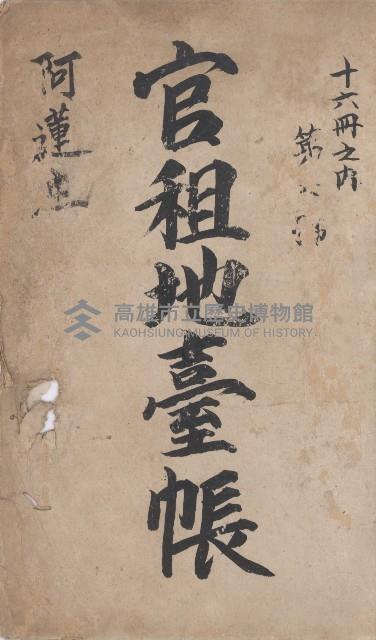 十六冊之內
第
官租地臺帳
阿蓮
高雄市立歷史博物館
KAOHSIUNG MUSEUM OF HISTORY